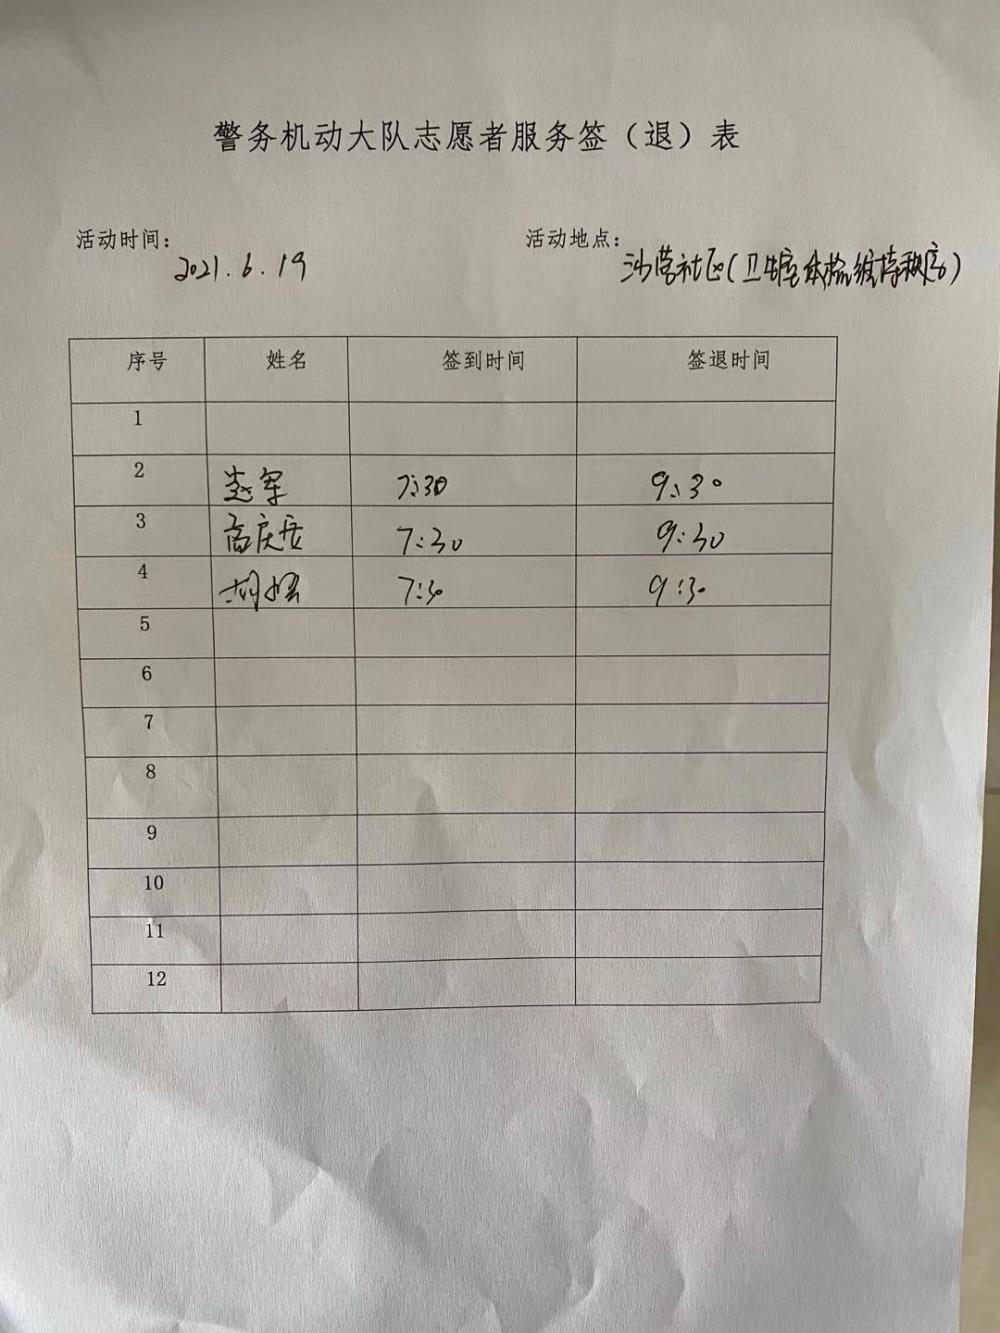 警务机动大队志愿者服务签（退）表
活动时间: 2021.6.19
活动地点: 沙营社区(卫生室体检维持秩序)
序号 姓名 签到时间 签退时间
1
2 赵军 7:30 9:30
3 高庆 7:30 9:30
4 胡 7:30 9:30
5
6
7
8
9
10
11
12